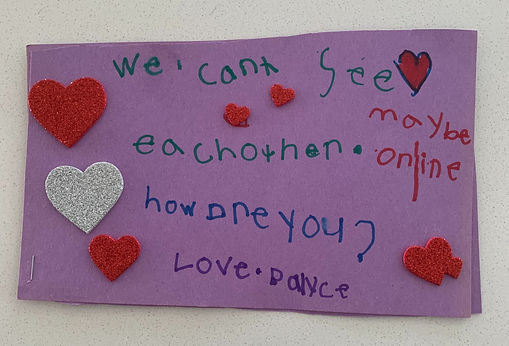 We. cant See
maybe
eachother. online
how are you?
Love. Dayce